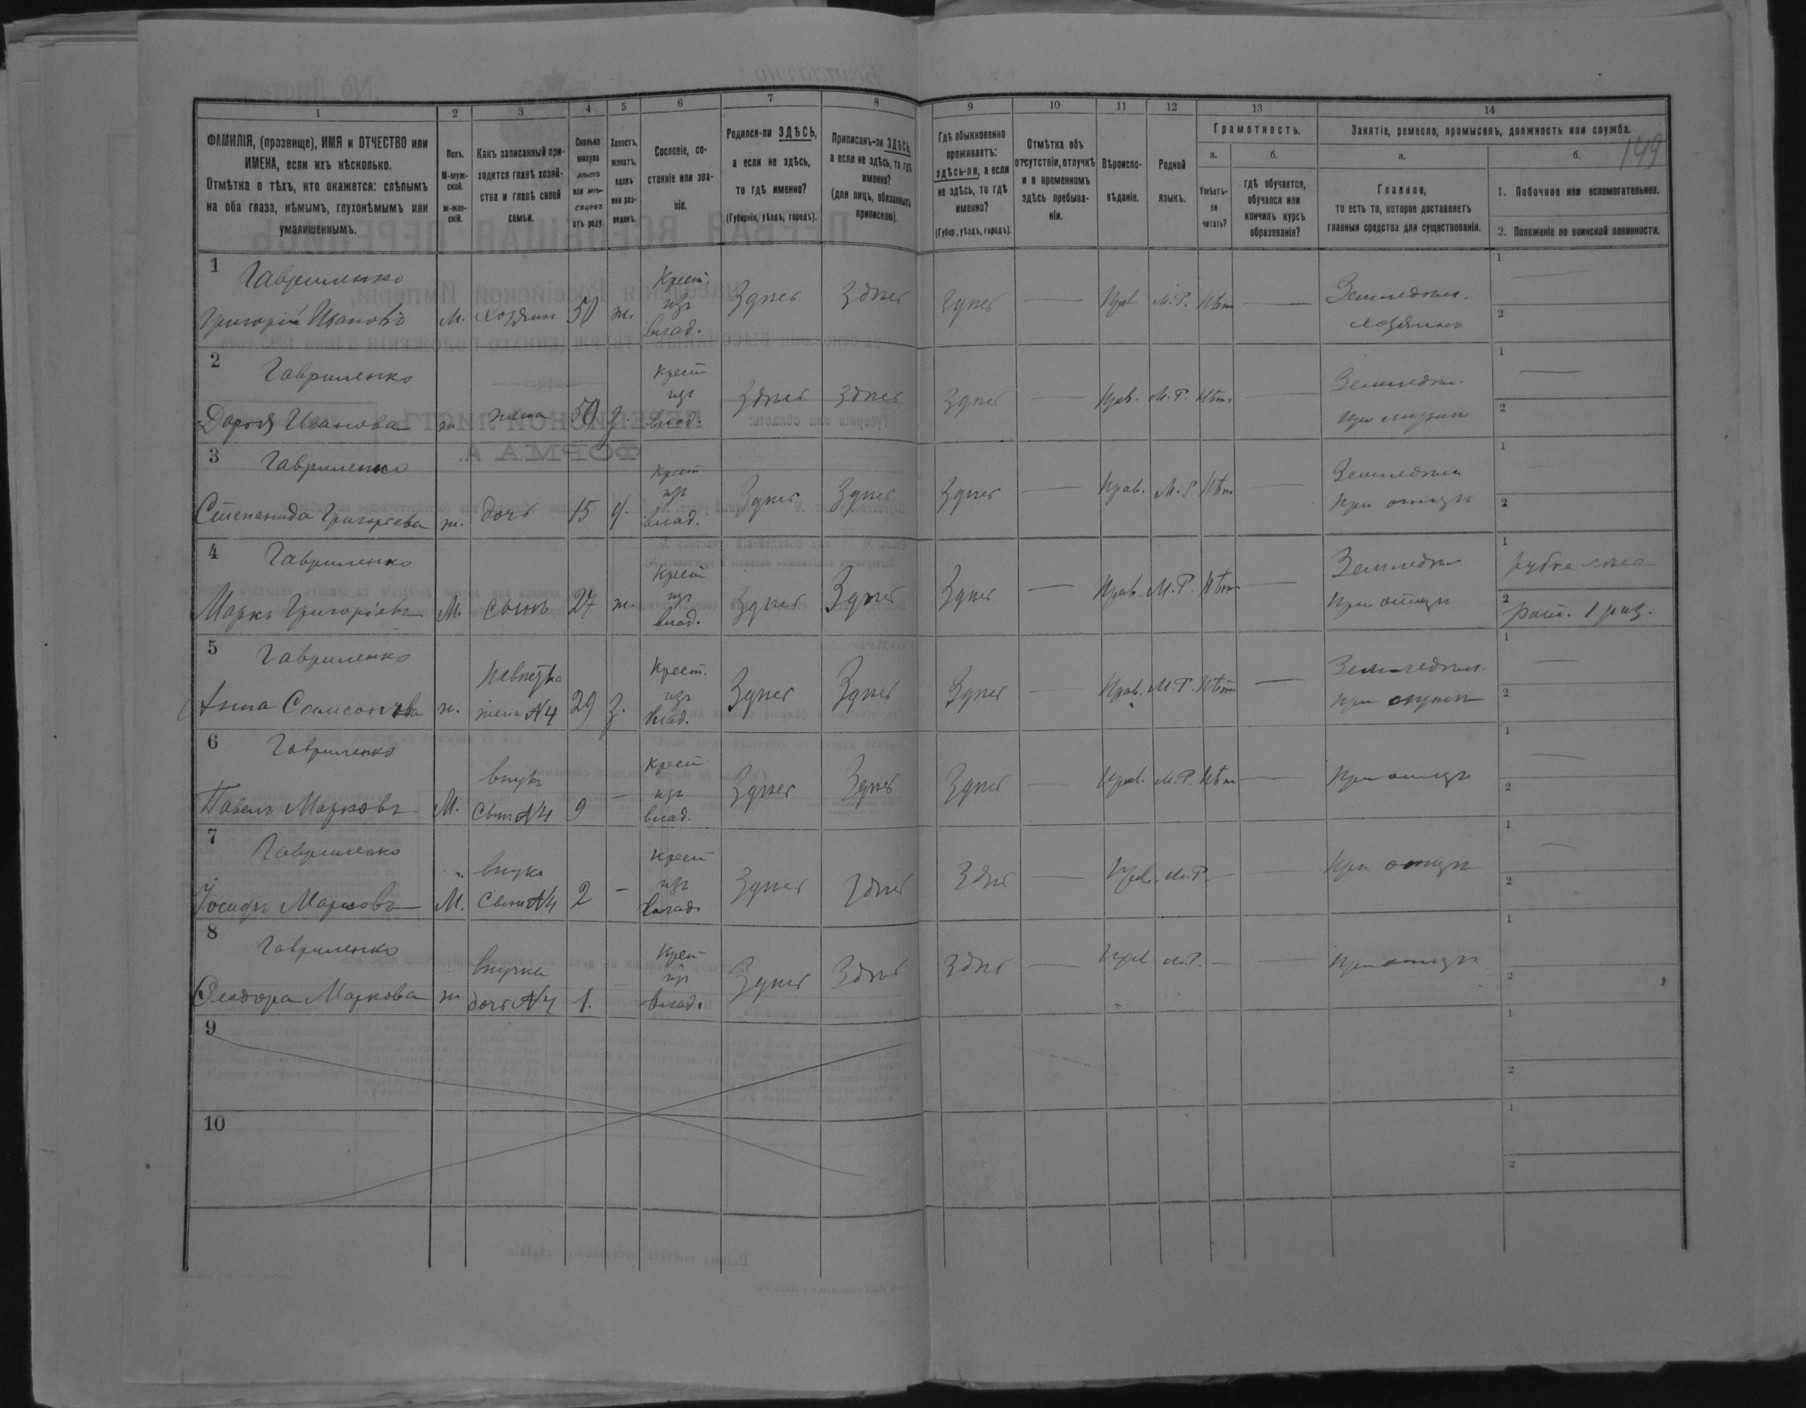 149
1 2 3 4 5 6 7 8 9 10 11 12 13 14
ФАМИЛІЯ, (прозвище), ИМЯ и ОТЧЕСТВО или
ИМЕНА, если ихъ нѣсколько.
Отмѣтка о тѣхъ, кто окажется: слѣпымъ
на оба глаза, нѣмымъ, глухонѣмымъ или
умалишеннымъ.
Полъ.
М-муж-
ской.
ж-жен-
скій.
Какъ записанный при-
ходится главѣ хозяй-
ства и главѣ своей
семьи.
Сколько
минуло
лѣтъ
или мѣ-
сяцевъ
отъ роду.
Холостъ,
женатъ,
вдовъ
или раз-
веденъ.
Сословіе, со-
стояніе или зва-
ніе.
Родился-ли ЗДѢСЬ,
а если не здѣсь,
то гдѣ именно?
(Губернія, уѣздъ, городъ).
Приписанъ-ли ЗДѢСЬ,
а если не здѣсь, то гдѣ
именно?
(для лицъ, обязанныхъ
припискою).
Гдѣ обыкновенно
проживаетъ:
здѣсь-ли, а если
не здѣсь, то гдѣ
именно?
(Губер., уѣздъ, городъ).
Отмѣтка объ
отсутствіи, отлучкѣ
и о временномъ
здѣсь пребыва-
ніи.
Вѣроиспо-
вѣданіе.
Родной
языкъ.
Грамотность.
а.
Умѣетъ-
ли
читать?
б.
гдѣ обучается,
обучался или
кончилъ курсъ
образованія?
Занятіе, ремесло, промыселъ, должность или служба.
а.
Главное,
то есть то, которое доставляетъ
главныя средства для существованія.
б.
1. Побочное или вспомогательное.
2. Положеніе по воинской повинности.
1 Гавриленко
Григорій Ивановъ м. хозяинъ 50 ж. Крест. изъ влад. Здѣсь Здѣсь Здѣсь — Прав. М.Р. Нѣтъ — Земледѣл. хозяинъ 1 — 2
2 Гавриленко
Дарья Иванова ж. жена 50 з. Крест изъ влад. Здѣсь Здѣсь Здѣсь — Прав. М.Р. Нѣтъ — Земледѣл. при мужѣ 1 — 2
3 Гавриленко
Степанида Григорьева ж. дочь 15 д. Крест изъ влад. Здѣсь Здѣсь Здѣсь — Прав. М.Р. Нѣтъ — Земледѣл. при отцѣ 1 — 2
4 Гавриленко
Маркъ Григорьевъ М. сынъ 27 ж. Крест изъ влад. Здѣсь Здѣсь Здѣсь — Прав. М.Р. Нѣтъ — Земледѣл. при отцѣ 1 рубка лѣса 2 рат. 1 раз.
5 Гавриленко
Анна Самсонова ж. невѣстка жена №4 29 з. Крест. изъ влад. Здѣсь Здѣсь Здѣсь — Прав. М.Р. Нѣтъ — Земледѣл. при мужѣ 1 — 2
6 Гавриленко
Павелъ Марковъ М. внукъ сынъ №4 9 — Крест изъ влад. Здѣсь Здѣсь Здѣсь — Прав. М.Р. Нѣтъ — при отцѣ 1 — 2
7 Гавриленко
Іосифъ Марковъ М. внукъ сынъ №4 2 — Крест изъ влад. Здѣсь Здѣсь Здѣсь — Прав. М.Р. — — при отцѣ 1 — 2
8 Гавриленко
Ѳеодора Маркова ж внучка дочь №4 1. Крест изъ влад. Здѣсь Здѣсь Здѣсь — Прав М.Р. — — при отцѣ 1 2
9 1 2
10 1 2